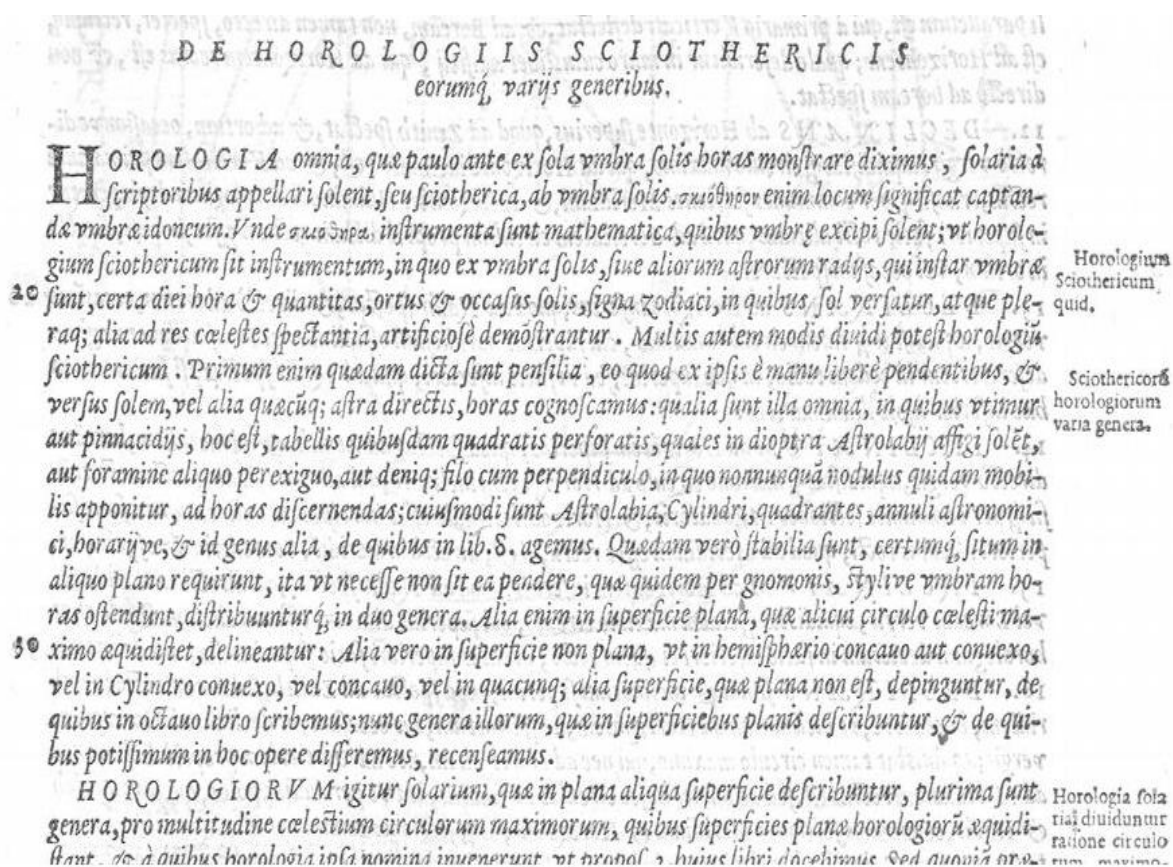 DE HOROLOGIIS SCIOTHERICIS
eorumq́, varijs generibus.
HOROLOGIA omnia, quæ paulo ante ex ſola vmbra ſolis horas monſtrare diximus, ſolaria à
ſcriptoribus appellari ſolent, ſeu ſciotherica, ab vmbra ſolis. σκιόθηρον enim locum ſignificat captan-
dæ vmbræ idoneum. Vnde σκιόθηρα inſtrumenta ſunt mathematica, quibus vmbrę excipi ſolent; vt horolo-
gium ſciothericum ſit inſtrumentum, in quo ex vmbra ſolis, ſiue aliorum aſtrorum radijs, qui inſtar vmbræ
Horologium
Sciothericum
quid.
20 ſunt, certa diei hora & quantitas, ortus & occaſus ſolis, ſigna zodiaci, in quibus ſol verſatur, atque ple-
raq; alia ad res cœleſtes ſpectantia, artificioſè demõſtrantur. Multis autem modis diuidi poteſt horologiũ
ſciothericum. Primum enim quædam dicta ſunt penſilia, eo quod ex ipſis è manu liberè pendentibus, &
Sciothericorũ
horologiorum
varia genera.
verſus ſolem, vel alia quæcũq; aſtra directis, horas cognoſcamus: qualia ſunt illa omnia, in quibus vtimur
aut pinnacidijs, hoc eſt, tabellis quibuſdam quadratis perforatis, quales in dioptra Aſtrolabij affigi ſolẽt,
aut foramine aliquo perexiguo, aut deniq; filo cum perpendiculo, in quo nonnunquã nodulus quidam mobi-
lis apponitur, ad horas diſcernendas; cuiuſmodi ſunt Aſtrolabia, Cylindri, quadrantes, annuli aſtronomi-
ci, horarijve, & id genus alia, de quibus in lib. 8. agemus. Quædam verò ſtabilia ſunt, certumq́, ſitum in
aliquo plano requirunt, ita vt neceſſe non ſit ea pendere, quæ quidem per gnomonis, ſtylive vmbram ho-
ras oſtendunt, diſtribuunturq́, in duo genera. Alia enim in ſuperficie plana, quæ alicui circulo cœleſti ma-
30 ximo æquidiſtet, delineantur: Alia vero in ſuperficie non plana, vt in hemiſphærio concauo aut conuexo,
vel in Cylindro conuexo, vel concauo, vel in quacunq; alia ſuperficie, quæ plana non eſt, depinguntur, de
quibus in octauo libro ſcribemus; nunc genera illorum, quæ in ſuperficiebus planis deſcribuntur, & de qui-
bus potiſſimum in hoc opere diſſeremus, recenſeamus.
HOROLOGIORVM igitur ſolarium, quæ in plana aliqua ſuperficie deſcribuntur, plurima ſunt
genera, pro multitudine cœleſtium circulorum maximorum, quibus ſuperficies planæ horologiorũ æquidi-
Horologia ſola
ria diuiduntur
ratione circulo
ſtant, & à quibus horologia ipſa nomina inuenerunt, vt propoſ. 2. huius libri docebimus. Sed quoniã